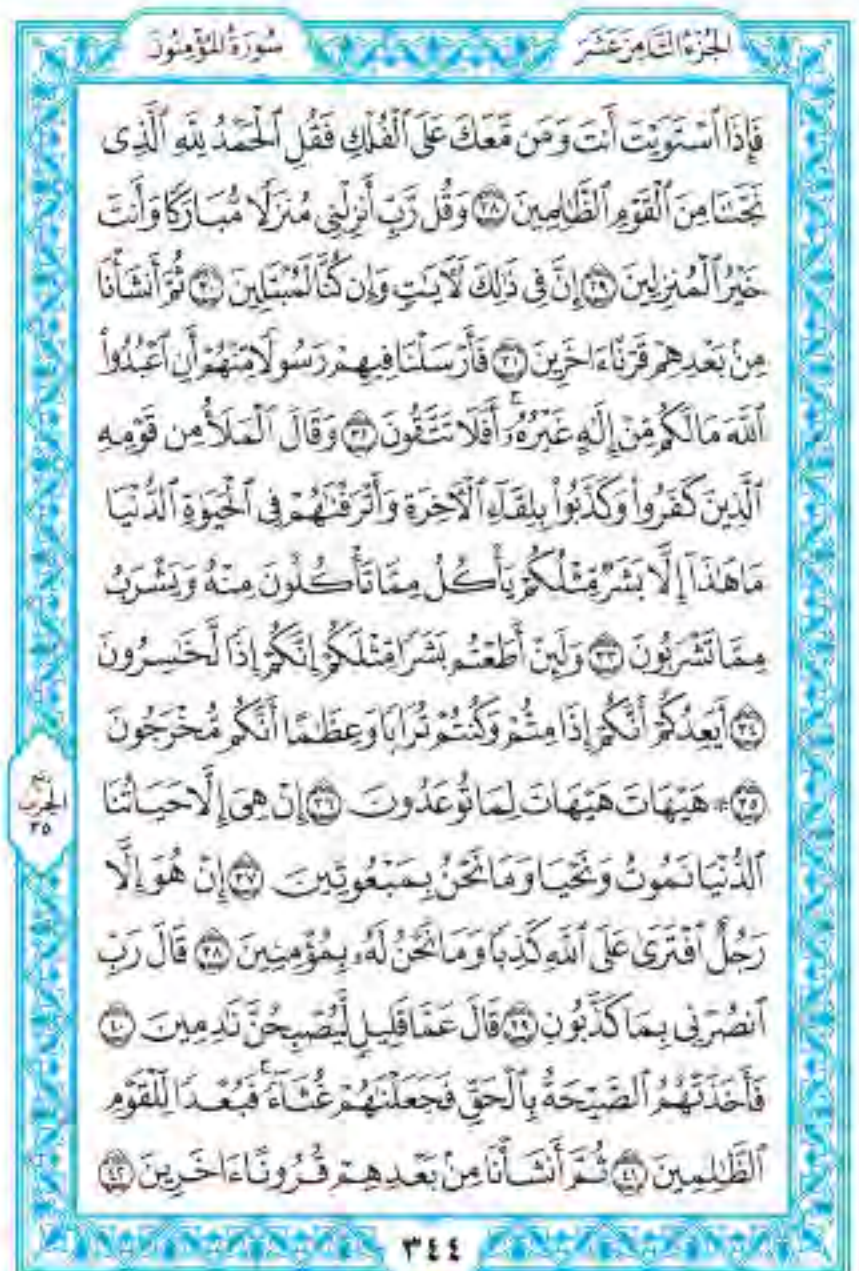 الجزء الثامن عشر
سورة المؤمنون
فَإِذَا ٱسْتَوَيْتَ أَنتَ وَمَن مَّعَكَ عَلَى ٱلْفُلْكِ فَقُلِ ٱلْحَمْدُ لِلَّهِ ٱلَّذِى
نَجَّىٰنَا مِنَ ٱلْقَوْمِ ٱلظَّٰلِمِينَ ٢٨ وَقُل رَّبِّ أَنزِلْنِى مُنزَلًا مُّبَارَكًا وَأَنتَ
خَيْرُ ٱلْمُنزِلِينَ ٢٩ إِنَّ فِى ذَٰلِكَ لَءَايَٰتٍ وَإِن كُنَّا لَمُبْتَلِينَ ٣٠ ثُمَّ أَنشَأْنَا
مِنۢ بَعْدِهِمْ قَرْنًا ءَاخَرِينَ ٣١ فَأَرْسَلْنَا فِيهِمْ رَسُولًا مِّنْهُمْ أَنِ ٱعْبُدُوا۟
ٱللَّهَ مَا لَكُم مِّنْ إِلَٰهٍ غَيْرُهُۥٓ ۚ أَفَلَا تَتَّقُونَ ٣٢ وَقَالَ ٱلْمَلَأُ مِن قَوْمِهِ
ٱلَّذِينَ كَفَرُوا۟ وَكَذَّبُوا۟ بِلِقَآءِ ٱلْءَاخِرَةِ وَأَتْرَفْنَٰهُمْ فِى ٱلْحَيَوٰةِ ٱلدُّنْيَا
مَا هَٰذَآ إِلَّا بَشَرٌ مِّثْلُكُمْ يَأْكُلُ مِمَّا تَأْكُلُونَ مِنْهُ وَيَشْرَبُ
مِمَّا تَشْرَبُونَ ٣٣ وَلَئِنْ أَطَعْتُم بَشَرًا مِّثْلَكُمْ إِنَّكُمْ إِذًا لَّخَٰسِرُونَ
٣٤ أَيَعِدُكُمْ أَنَّكُمْ إِذَا مِتُّمْ وَكُنتُمْ تُرَابًا وَعِظَٰمًا أَنَّكُم مُّخْرَجُونَ
٣٥ ۞ هَيْهَاتَ هَيْهَاتَ لِمَا تُوعَدُونَ ٣٦ إِنْ هِىَ إِلَّا حَيَاتُنَا
ٱلدُّنْيَا نَمُوتُ وَنَحْيَا وَمَا نَحْنُ بِمَبْعُوثِينَ ٣٧ إِنْ هُوَ إِلَّا
رَجُلٌ ٱفْتَرَىٰ عَلَى ٱللَّهِ كَذِبًا وَمَا نَحْنُ لَهُۥ بِمُؤْمِنِينَ ٣٨ قَالَ رَبِّ
ٱنصُرْنِى بِمَا كَذَّبُونِ ٣٩ قَالَ عَمَّا قَلِيلٍ لَّيُصْبِحُنَّ نَٰدِمِينَ ٤٠
فَأَخَذَتْهُمُ ٱلصَّيْحَةُ بِٱلْحَقِّ فَجَعَلْنَٰهُمْ غُثَآءً ۚ فَبُعْدًا لِّلْقَوْمِ
ٱلظَّٰلِمِينَ ٤١ ثُمَّ أَنشَأْنَا مِنۢ بَعْدِهِمْ قُرُونًا ءَاخَرِينَ ٤٢
الحزب
٣٥
٣٤٤